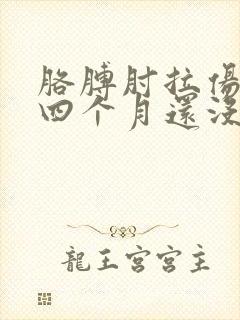 胳膊肘拉傷
四个月還没
龍王宮宮主